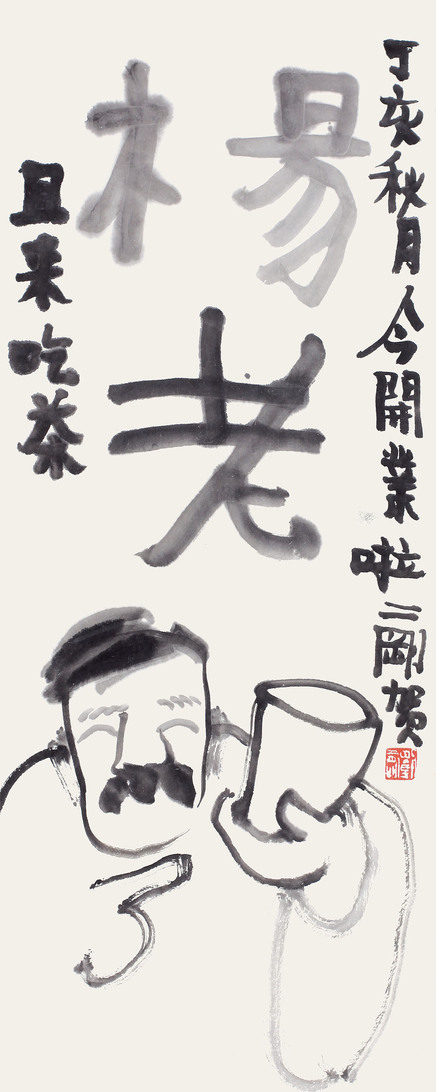 丁亥秋月今開業啦二剛賀
楊
老
且来吃茶